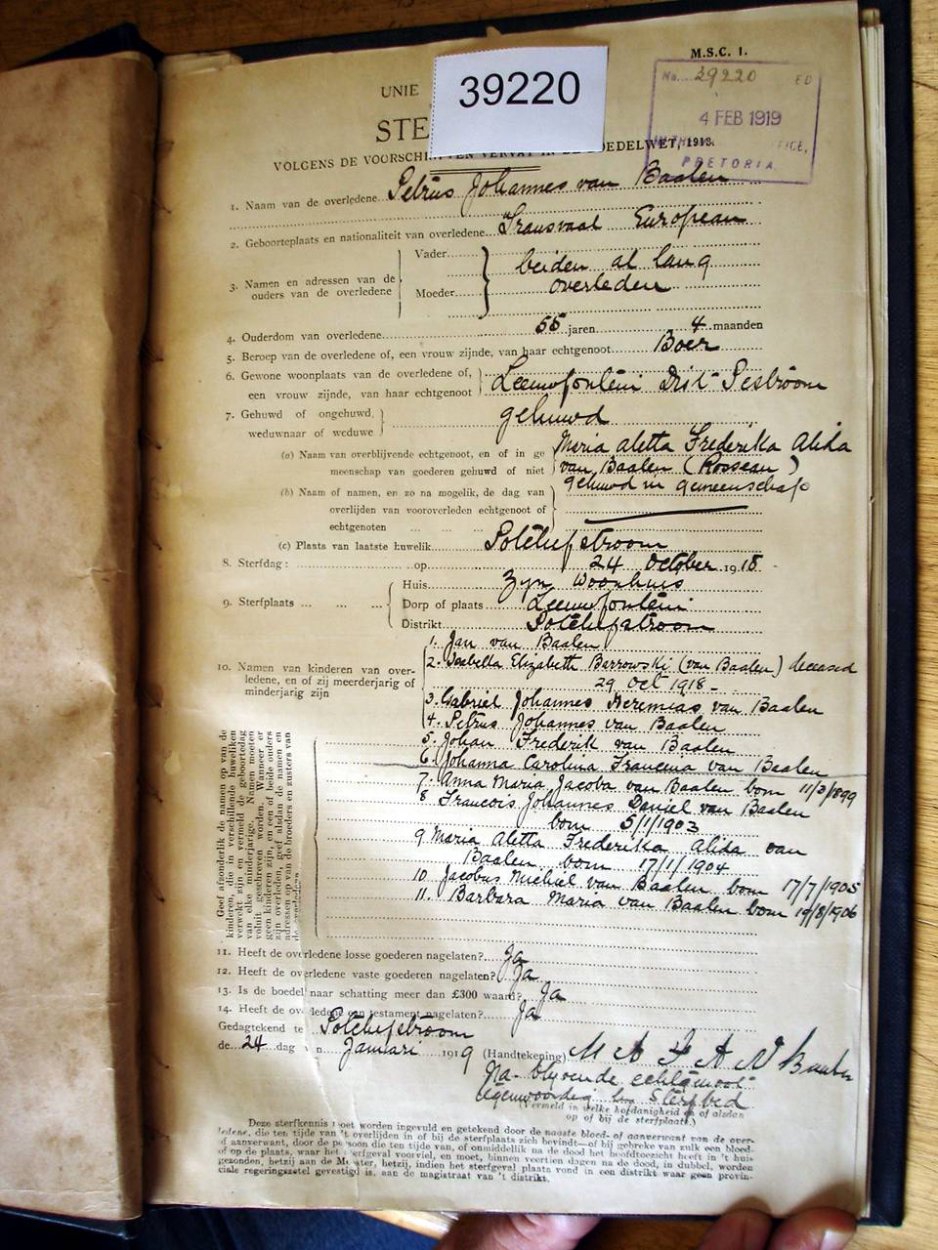 M.S.C. 1.
No. 39220 ED
4 FEB 1919
PRETORIA
39220
UNIE
STE
VOLGENS DE VOORSCHRIFTEN VERVAT IN DE BOEDELWET, 1913.
1. Naam van de overledene Petrus Johannes van Baalen
2. Geboorteplaats en nationaliteit van overledene Transvaal European
3. Namen en adressen van de ouders van de overledene
Vader
Moeder
beiden al lang
overleden
4. Ouderdom van overledene 55 jaren 4 maanden
5. Beroep van de overledene of, een vrouw zijnde, van haar echtgenoot Boer
6. Gewone woonplaats van de overledene of,
een vrouw zijnde, van haar echtgenoot
Leeuwfontein Dist
7. Gehuwd of ongehuwd,
weduwnaar of weduwe
gehuwd
(a) Naam van overblijvende echtgenoot, en of in ge
meenschap van goederen gehuwd of niet
Maria Aletta Frederika Alida
van Baalen (Rosseau)
gehuwd in gemeenschap
(b) Naam of namen, en zo na mogelik, de dag van
overlijden van vooroverleden echtgenoot of
echtgenoten
(c) Plaats van laatste huwelik Potchefstroom
8. Sterfdag: op 24 October 1918
9. Sterfplaats
Huis Zyn Woonhuis
Dorp of plaats Leeuwfontein
Distrikt Potchefstroom
10. Namen van kinderen van over-
ledene, en of zij meerderjarig of
minderjarig zijn
1. Jan van Baalen
2. Isabella Elizabeth Barrowski (van Baalen) deceased
29 Oct 1918
3. Gabriel Johannes Jeremias van Baalen
4. Petrus Johannes van Baalen
5. Johan Frederik van Baalen
6. Johanna Carolina Francina van Baalen
7. Anna Maria Jacoba van Baalen born 11/3/1899
8 Francois Johannes Daniel van Baalen
born 5/1/1903
9 Maria Aletta Frederika Alida van
Baalen born 17/1/1904
10 Jacobus Michiel van Baalen born 17/7/1905
11. Barbara Maria van Baalen born 19/8/1906
Geef afsonderlik de namen op van de
kinderen, die in verschillende huweliken
verwekt zijn en vermeld de geboortedag
van elke minderjarige. Namen moeten
voluit geschreven worden. Wanneer er
geen kinderen zijn, en een of beide ouders
zijn overleden, geef alsdan de namen en
adressen op van de broeders en zusters van
de overledene
11. Heeft de overledene losse goederen nagelaten? Ja
12. Heeft de overledene vaste goederen nagelaten? Ja
13. Is de boedel naar schatting meer dan £300 waard? Ja
14. Heeft de overledene een testament nagelaten? Ja
Gedagtekend te Potchefstroom
de 24 dag van Januari 1919 (Handtekening) M A F A V Baalen
Na blyvende echtgenoot
tegenwoordig by Sterfbed
(Vermeld in welke hoedanigheid en of alsdan
op of bij de sterfplaats.)
Deze sterfkennis moet worden ingevuld en getekend door de naaste bloed- of aanverwant van de over-
ledene, die ten tijde van 't overlijden in of bij de sterfplaats zich bevindt—of bij gebreke van zulk een bloed-
of aanverwant, door de persoon die ten tijde van, of onmiddellik na de dood het hoofdtoezicht heeft in 't huis
of op de plaats, waar het sterfgeval voorviel, en moet, binnen veertien dagen na de dood, in dubbel, worden
gezonden, hetzij aan de Meester, hetzij, indien het sterfgeval plaats vond in een distrikt waar geen provin-
ciale regeringszetel gevestigd is, aan de magistraat van 't distrikt.